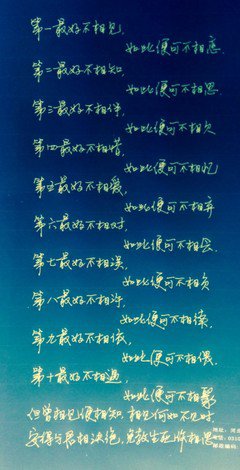 第一最好不相见,
如此便可不相恋.
第二最好不相知,
如此便可不相思.
第三最好不相伴,
如此便可不相欠
第四最好不相惜,
如此便可不相忆
第五最好不相爱,
如此便可不相弃
第六最好不相对,
如此便可不相会.
第七最好不相误,
如此便可不相负
第八最好不相许,
如此便可不相续,
第九最好不相依,
如此便可不相偎.
第十最好不相遇,
如此便可不相聚
但曾相见便相知,相见何如不见时
安得与君相决绝,免教生死作相思
地址:河
0310
邮政编码: